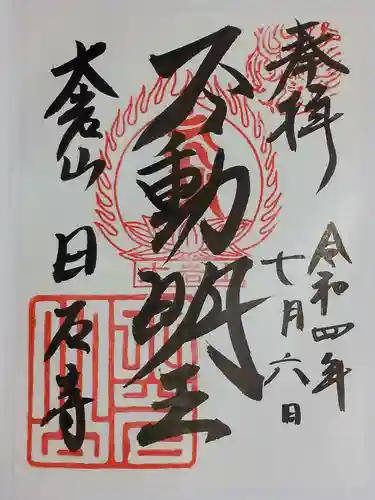 奉拝
令和四年
七月六日
不動明王
大岩山
日石寺